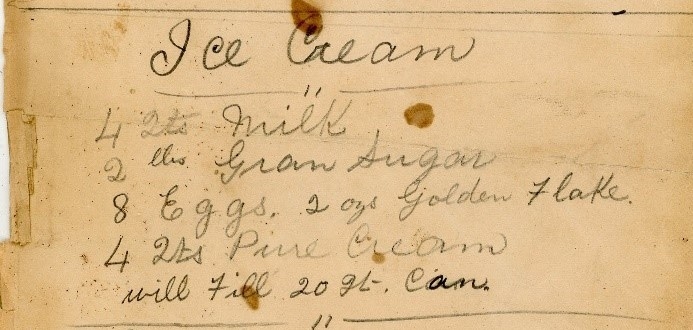 Ice Cream
"
4 Qts Milk
2 lbs Gran Sugar
8 Eggs. 2 ozs Golden Flake.
4 Qts Pure Cream
will Fill 20 qt. Can.
"